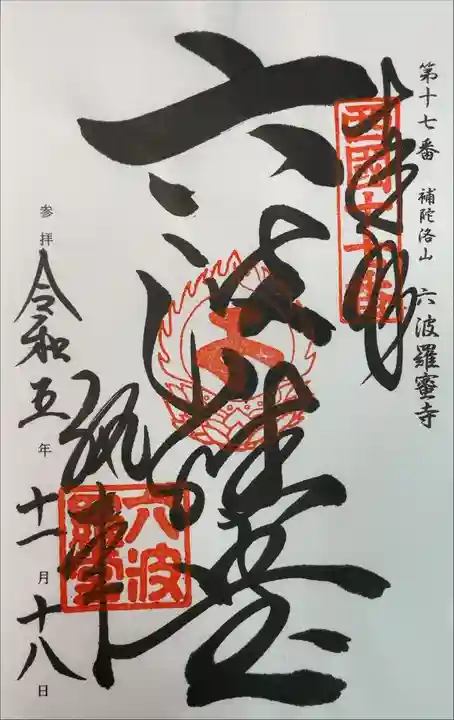 第十七番 補陀洛山 六波羅蜜寺
奉拝
西國十七番
六波羅堂
執事
六波
参拝 令和五年十一月十八日